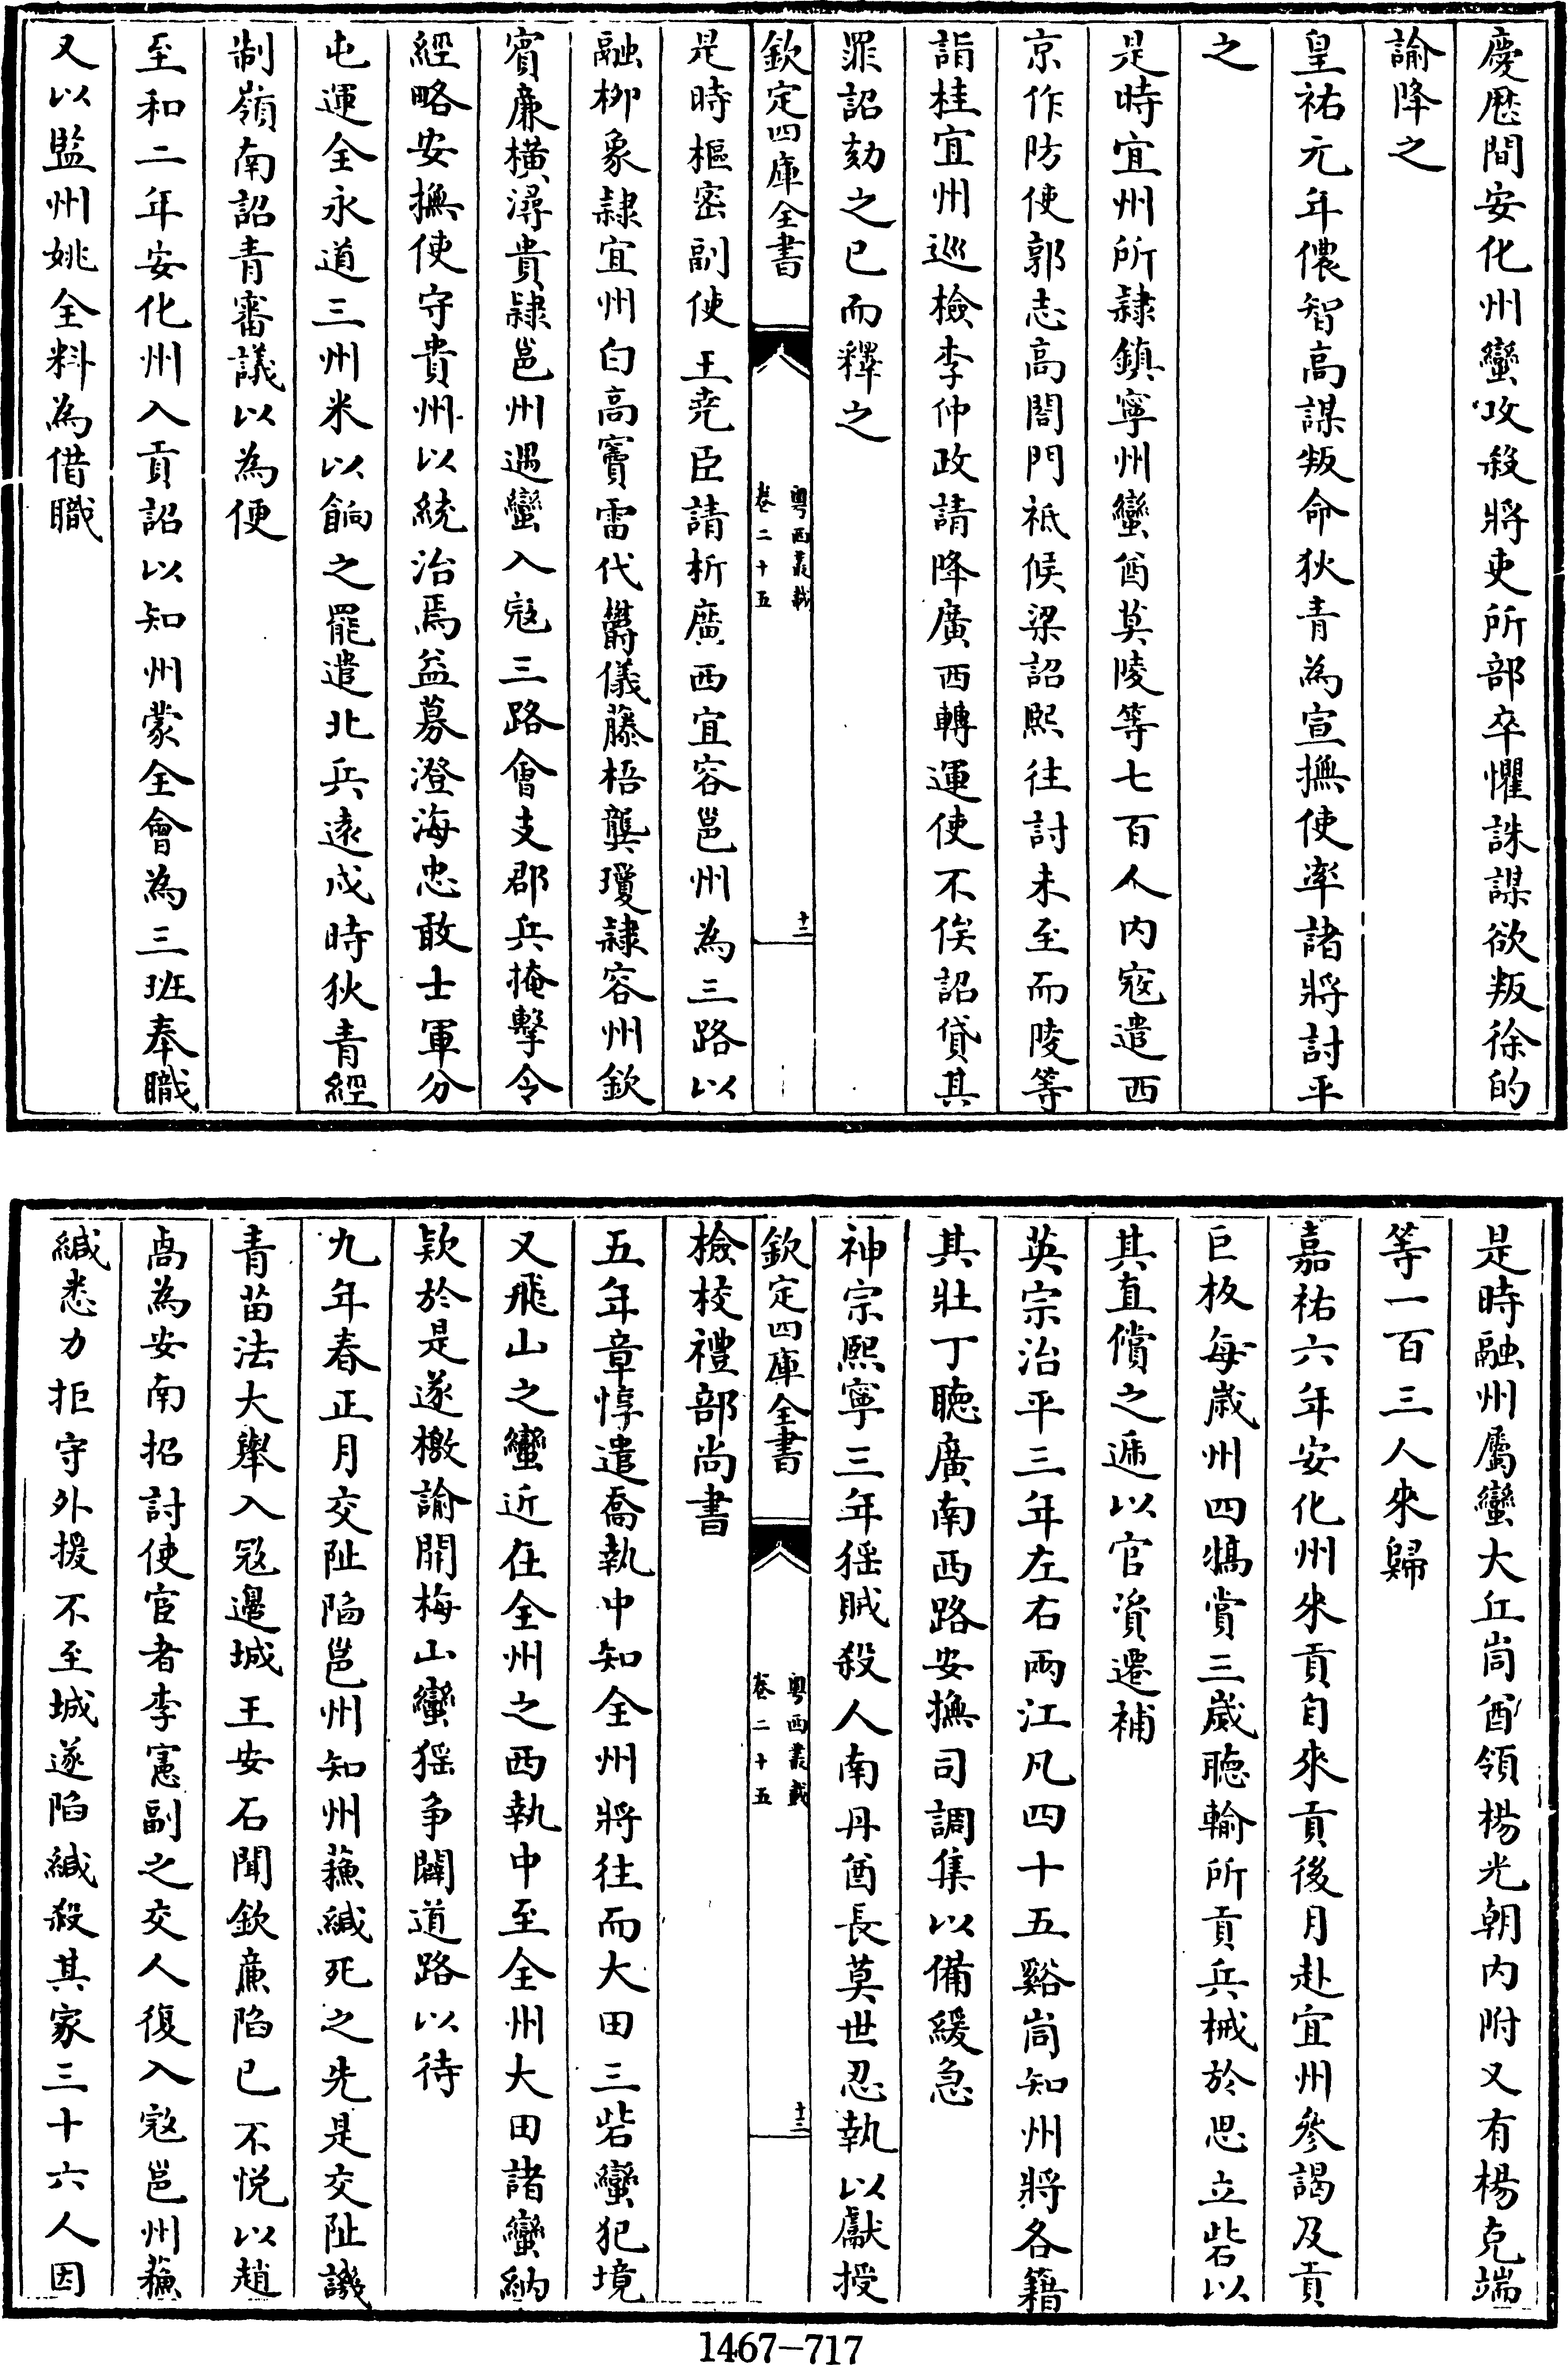 慶厯間安化州蠻攻殺將吏所部卒懼誅謀欲叛徐的
諭降之
皇祐元年儂智高謀叛命狄青為宣撫使率諸將討平
之
是時宜州所隷鎮寧州蠻酋莫陵等七百人内寇遣西
京作防使郭志高閤門祗候梁詔熙往討未至而陵等
詣桂宜州巡檢李仲政請降廣西轉運使不俟詔貸其
罪詔劾之已而釋之
欽定四庫全書
粤西叢載
卷二十五
十二
是時樞密副使王堯臣請析廣西宜容邕州為三路以
融栁象隷宜州白高竇雷化鬱儀藤梧龔瓊隷容州欽
賓廉橫潯貴隷邕州遇蠻入寇三路會支郡兵掩擊令
經略安撫使守貴州以統治焉益募澄海忠敢士軍分
屯運全永道三州米以餉之罷遣北兵遠戍時狄青經
制嶺南詔青審議以為便
至和二年安化州入貢詔以知州蒙全會為三班奉職
又以監州姚全料為借職
是時融州屬蠻大丘峝酋領楊光朝内附又有楊克端
等一百三人來歸
嘉祐六年安化州來貢自來貢後月赴宜州參謁及貢
巨板每歲州四犒賞三歲聽輸所貢兵械於思立砦以
其直償之遞以官資遷補
英宗治平三年左右兩江凡四十五谿峝知州將各籍
其壯丁聽廣南西路安撫司調集以備緩急
神宗熙寧三年猺賊殺人南丹酋長莫世忍執以獻授
欽定四庫全書
粤西叢載
卷二十五
十三
檢校禮部尚書
五年章惇遣喬執中知全州將往而大田三砦蠻犯境
又飛山之蠻近在全州之西執中至全州大田諸蠻納
欵於是遂檄諭開梅山蠻猺争闢道路以待
九年春正月交阯陷邕州知州蘓緘死之先是交阯譏
青苗法大舉入冦邊城王安石聞欽亷陷已不悦以趙
卨為安南招討使宦者李憲副之交人復入寇邕州蘓
緘悉力拒守外援不至城遂陷緘殺其家三十六人因
1467-717